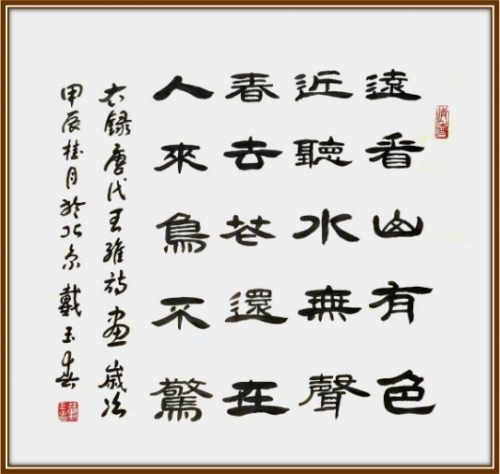 遠看山有色
近聽水無聲
春去花還在
人來鳥不驚
右錄唐代王維詩畫歲次
甲辰桂月於北京戴玉春